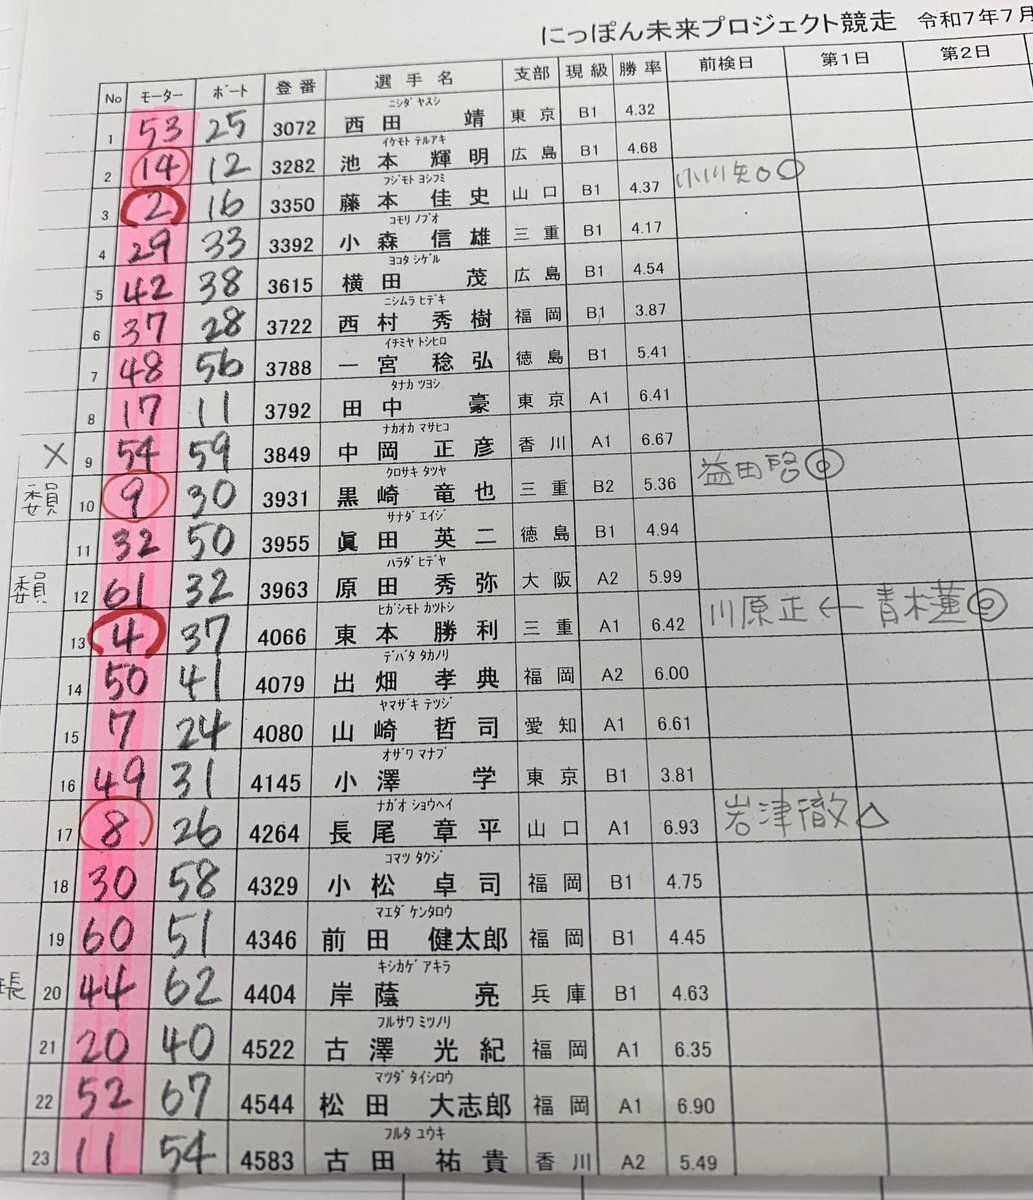 にっぽん未来プロジェクト競走 令和7年7月
No モーター ボート 登番 選手名 支部 現級 勝率 前検日 第1日 第2日
ニシダ ヤスシ
1 53 25 3072 西田 靖 東京 B1 4.32
イケモト テルアキ
2 14 12 3282 池本 輝明 広島 B1 4.68
フジモト ヨシフミ
3 2 16 3350 藤本 佳史 山口 B1 4.37 小川矢○
コモリ ノブオ
4 29 33 3392 小森 信雄 三重 B1 4.17
ヨコタ シゲル
5 42 38 3615 横田 茂 広島 B1 4.54
ニシムラ ヒデキ
6 37 28 3722 西村 秀樹 福岡 B1 3.87
イチミヤ トシヒロ
7 48 56 3788 一宮 稔弘 徳島 B1 5.41
タナカ ツヨシ
8 17 11 3792 田中 豪 東京 A1 6.41
ナカオカ マサヒコ
× 9 54 59 3849 中岡 正彦 香川 A1 6.67
クロサキ タツヤ
委員 10 9 30 3931 黒崎 竜也 三重 B2 5.36 益田啓◎
サナダ エイジ
11 32 50 3955 眞田 英二 徳島 B1 4.94
ハラダ ヒデヤ
委員 12 61 32 3963 原田 秀弥 大阪 A2 5.99
ヒガシモト カツトシ
13 4 37 4066 東本 勝利 三重 A1 6.42 川原正←青木蓮◎
デバタ タカノリ
14 50 41 4079 出畑 孝典 福岡 A2 6.00
ヤマザキ テツジ
15 7 24 4080 山崎 哲司 愛知 A1 6.61
オザワ マナブ
16 49 31 4145 小澤 学 東京 B1 3.81
ナガオ ショウヘイ
17 8 26 4264 長尾 章平 山口 A1 6.93 岩津徹△
コマツ タクジ
18 30 58 4329 小松 卓司 福岡 B1 4.75
マエダ ケンタロウ
19 60 51 4346 前田 健太郎 福岡 B1 4.45
キシカゲ アキラ
長 20 44 62 4404 岸蔭 亮 兵庫 B1 4.63
フルサワ ミツノリ
21 20 40 4522 古澤 光紀 福岡 A1 6.35
マツダ タイシロウ
22 52 67 4544 松田 大志郎 福岡 A1 6.90
フルタ ユウキ
23 11 54 4583 古田 祐貴 香川 A2 5.49